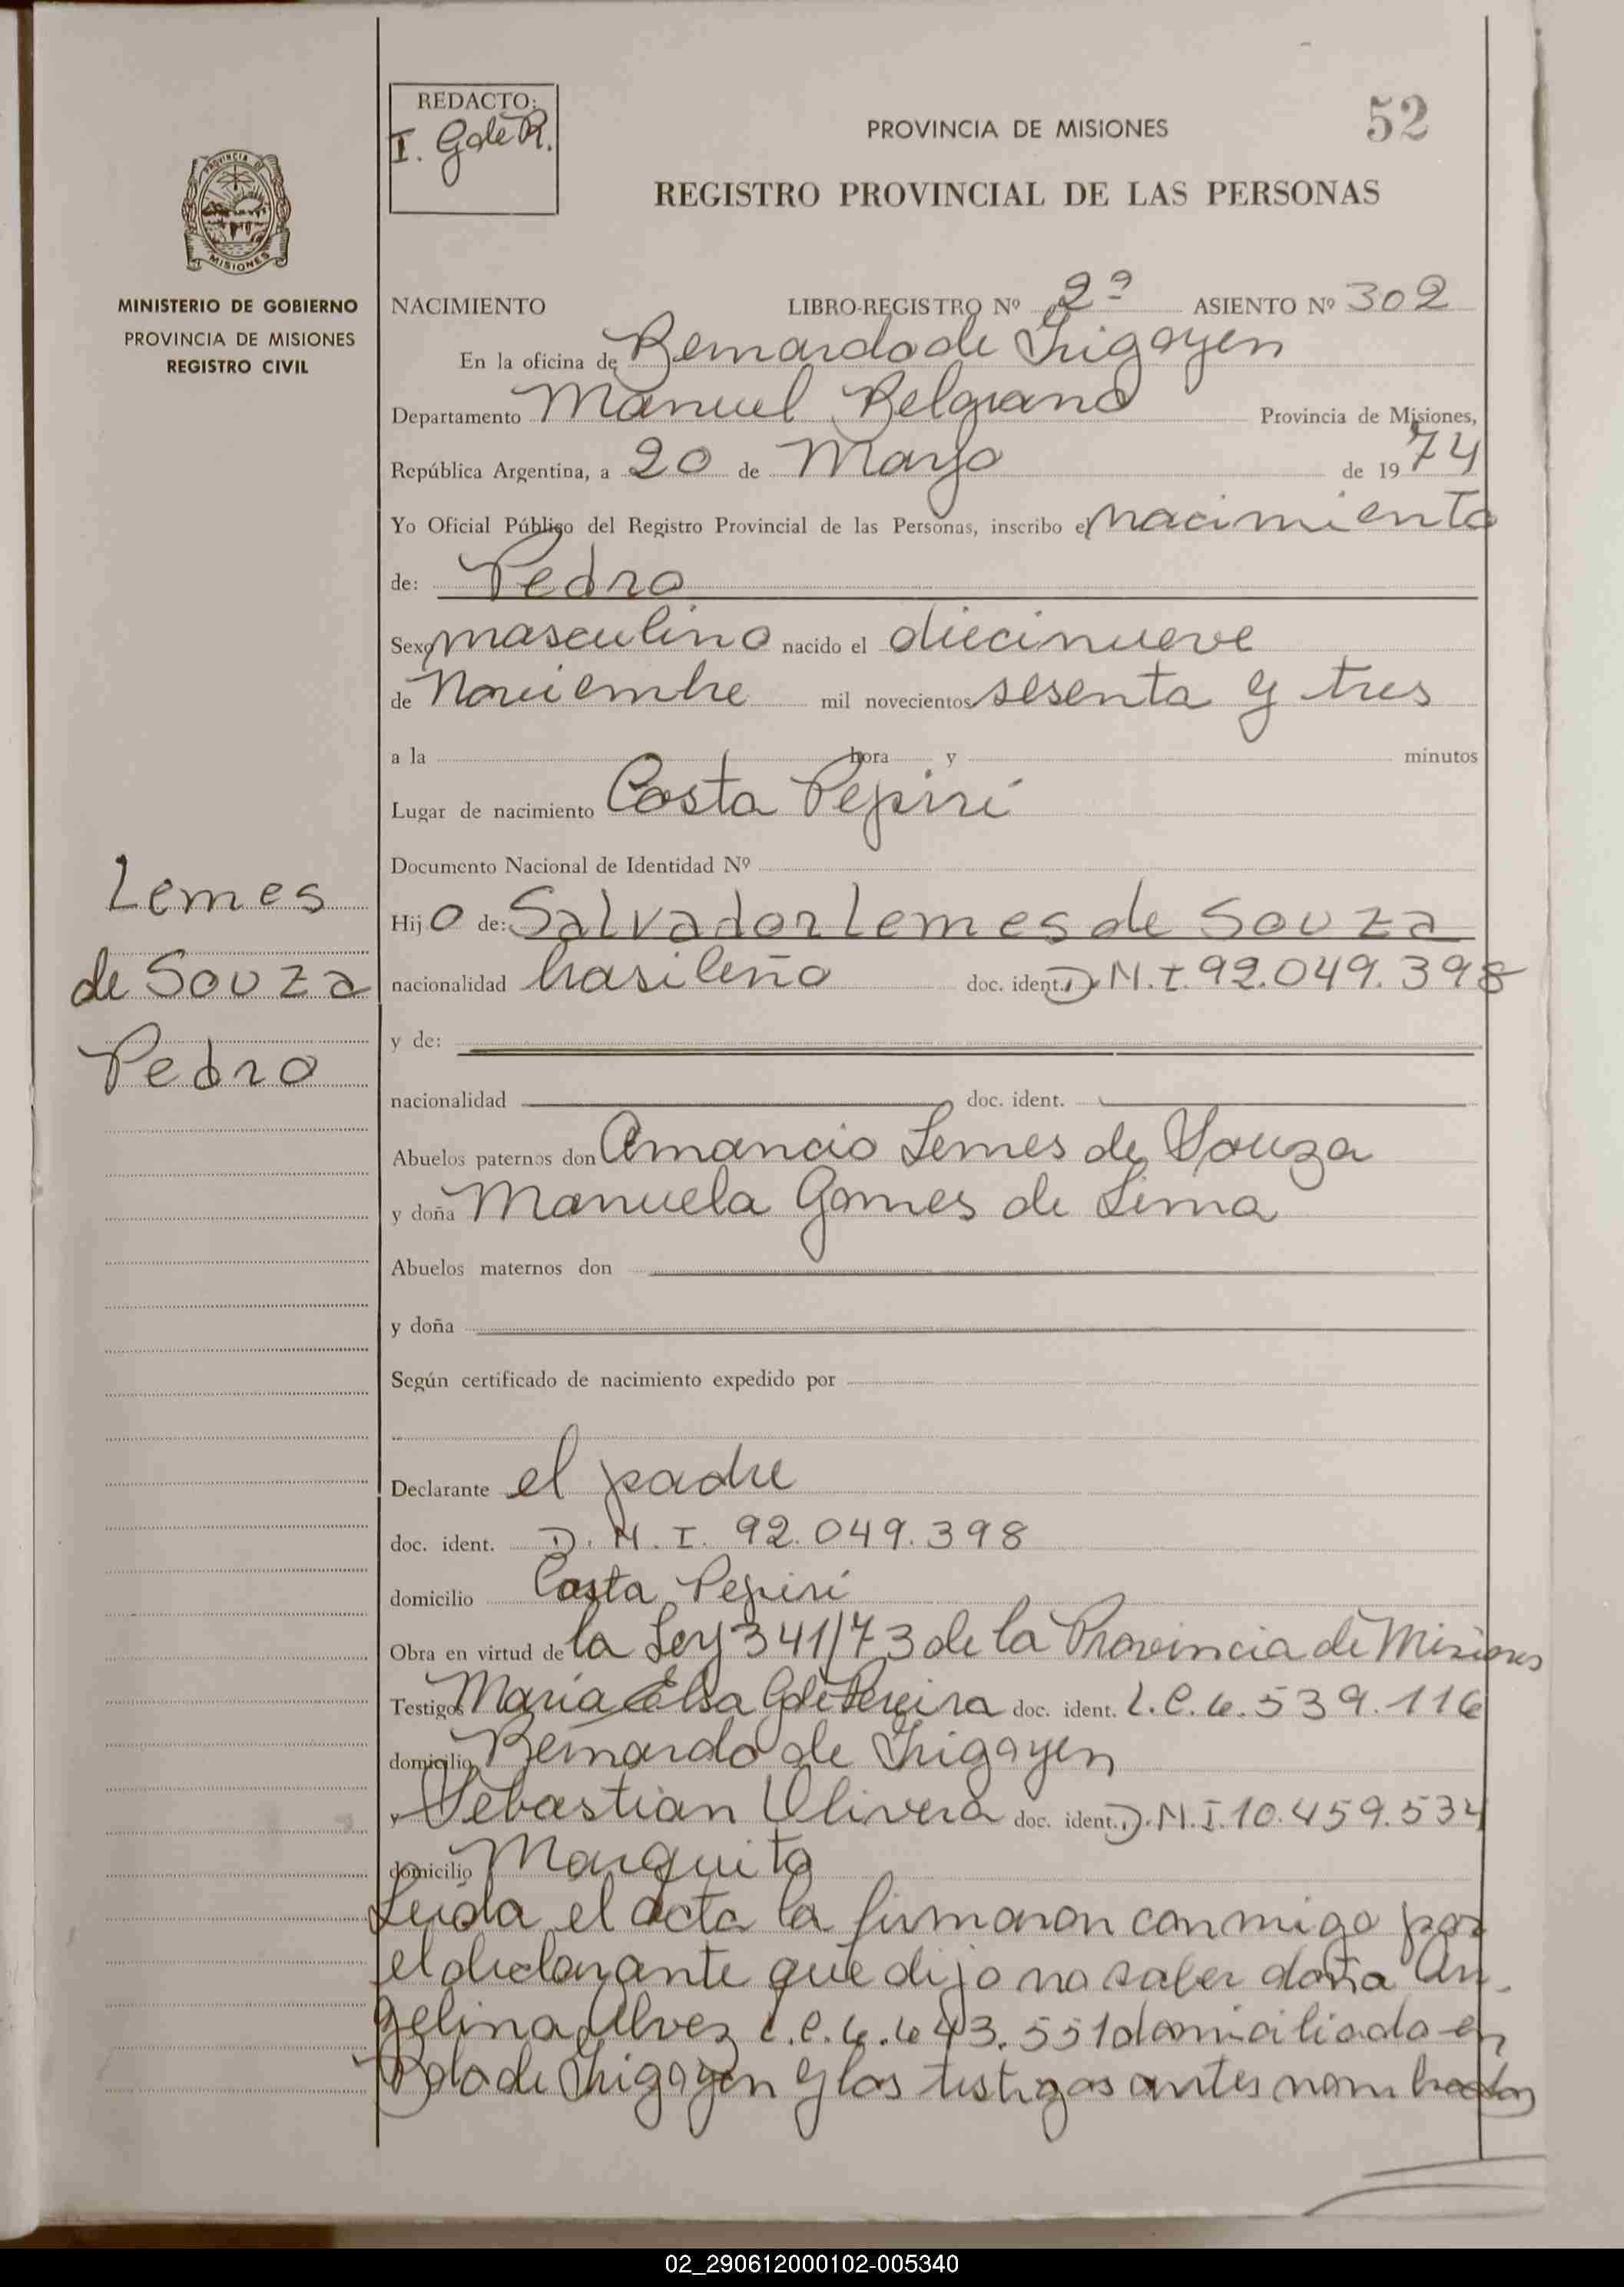 REDACTO:
I. G de R.
52
PROVINCIA DE MISIONES
REGISTRO PROVINCIAL DE LAS PERSONAS
PROVINCIA DE
MISIONES
MINISTERIO DE GOBIERNO
PROVINCIA DE MISIONES
REGISTRO CIVIL
NACIMIENTO LIBRO-REGISTRO Nº 2º ASIENTO Nº 302
En la oficina de Bernardo de Irigoyen
Departamento Manuel Belgrano Provincia de Misiones,
República Argentina, a 20 de Mayo de 1974
Yo Oficial Público del Registro Provincial de las Personas, inscribo el nacimiento
de: Pedro
Sexo masculino nacido el diecinueve
de Noviembre mil novecientos sesenta y tres
a la hora y minutos
Lugar de nacimiento Costa Pepirí
Documento Nacional de Identidad Nº
Lemes
de Souza
Pedro
Hijo de: Salvador Lemes de Souza
nacionalidad brasileño doc. ident. D.N.I. 92.049.398
y de:
nacionalidad doc. ident.
Abuelos paternos don Amancio Lemes de Souza
y doña Manuela Gomes de Lima
Abuelos maternos don
y doña
Según certificado de nacimiento expedido por
Declarante el padre
doc. ident. D.N.I. 92.049.398
domicilio Costa Pepirí
Obra en virtud de la Ley 341/73 de la Provincia de Misiones
Testigos María Elsa G de Pereira doc. ident. L.C. 6.539.116
domicilio Bernardo de Irigoyen
y Sebastian Olivera doc. ident. D.N.I. 10.459.534
domicilio Marquito
Leída el acta la firmaron conmigo por
el declarante que dijo no saber doña An-
gelina Alvez L.C. 6.643.551 domiciliada en
Bdo de Irigoyen y los testigos antes nombrados
02_290612000102-005340